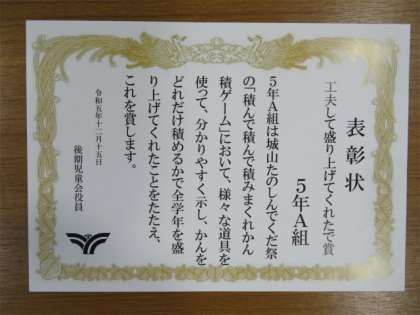 表彰状
工夫して盛り上げてくれたで賞
5年A組
5年A組は城山たのしんでくだ祭
の「積んで積んで積みまくれかん
積ゲーム」において、様々な道具を
使って、分かりやすく示し、かんを
どれだけ積めるかで全学年を盛
り上げてくれたことをたたえ、
これを賞します。
令和五年十二月十五日
後期児童会役員